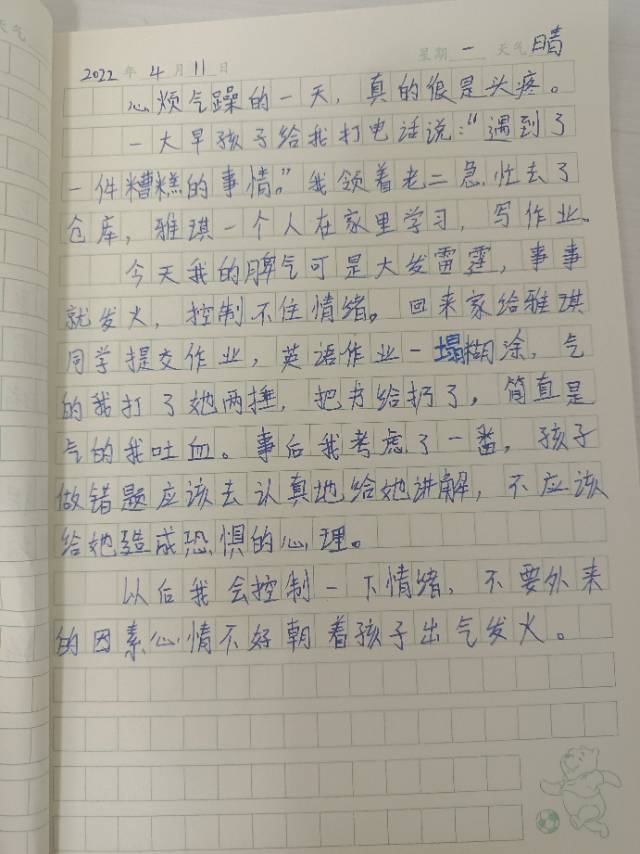 天气
2022年4月11日 星期一 天气晴
心烦气躁的一天，真的很是头疼。
一大早孩子给我打电话说：“遇到了
一件糟糕的事情。”我领着老二急忙去了
仓库，雅琪一个人在家里学习，写作业。
今天我的脾气可是大发雷霆，事事
就发火，控制不住情绪。回来家给雅琪
同学提交作业，英语作业一塌糊涂，气
的我打了她两捶，把书给扔了，简直是
气的我吐血。事后我考虑了一番，孩子
做错题应该去认真地给她讲解，不应该
给她造成恐惧的心理。
以后我会控制一下情绪，不要外来
的因素心情不好朝着孩子出气发火。